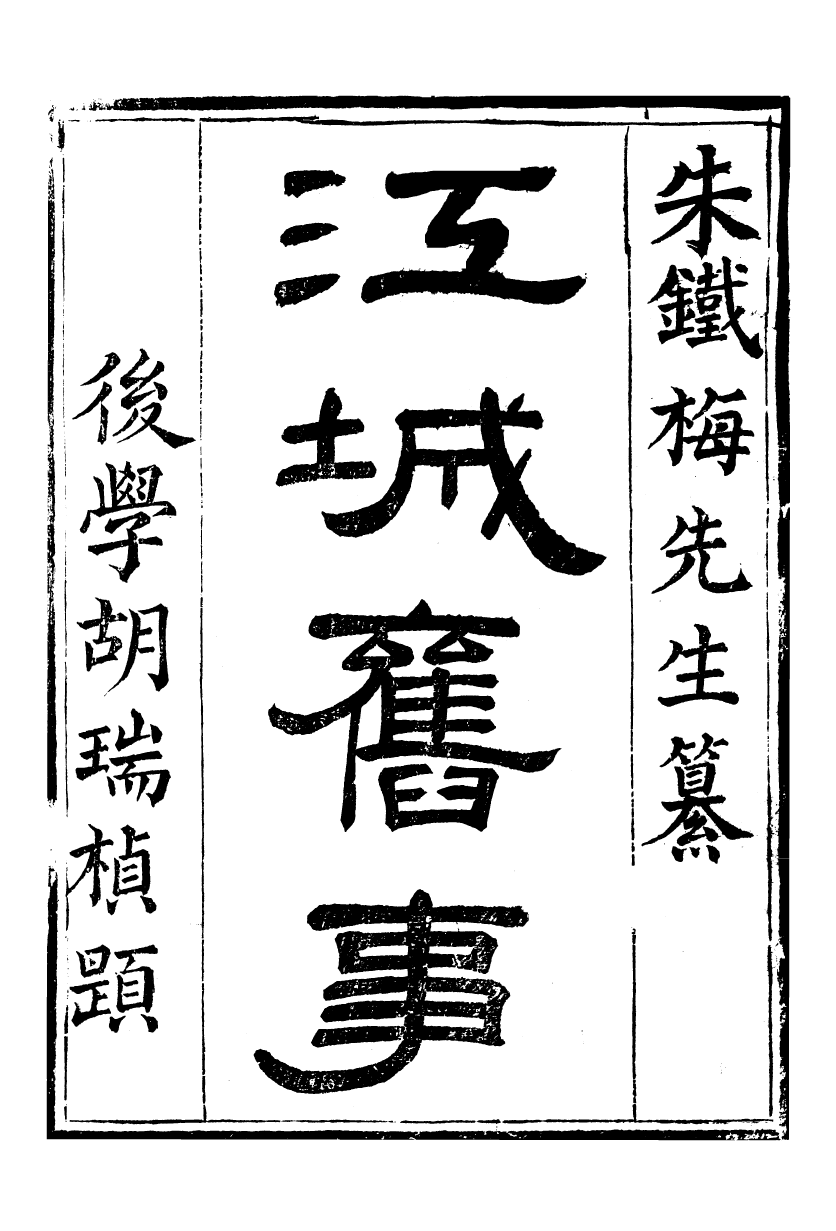 朱鐵梅先生纂
江城舊事
後學胡瑞楨題